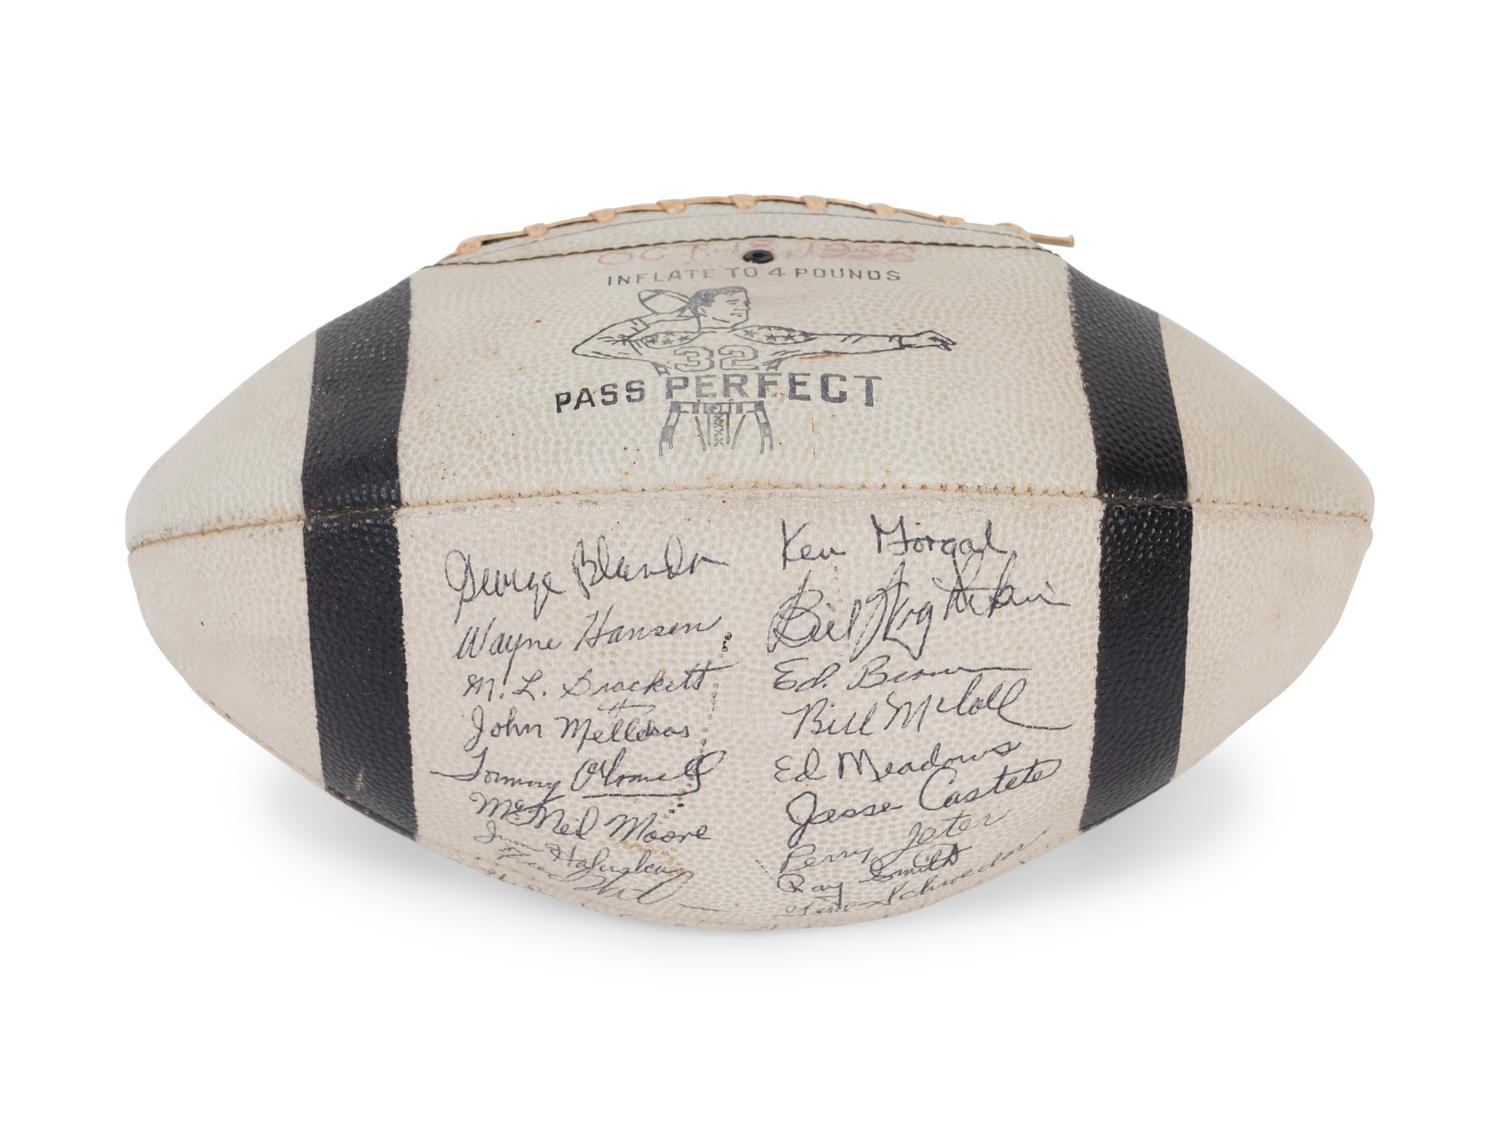 OCT. 13, 1956
INFLATE TO 4 POUNDS
32
PASS PERFECT
George Blanda
Wayne Hansen
M. L. Brackett
John Mellekas
Tommy O'Connell
McNeil Moore
Ken Gorgal
Bill Wightkin
Ed. Brown
Bill McColl
Ed Meadows
Jesse Castete
Perry Jeter
Ray Smith